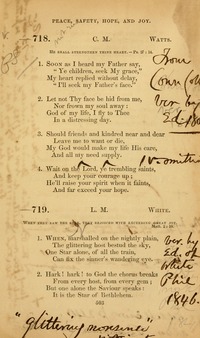 PEACE, SAFETY, HOPE, AND JOY.
718. C. M. WATTS.
HE SHALL STRENGTHEN THINE HEART.—Ps. 27: 14.
1. SOON as I heard my Father say,
" Ye children, seek My grace,"
My heart replied without delay,
"I'll seek my Father's face."
2. Let not Thy face be hid from me,
Nor frown my soul away;
God of my life, I fly to Thee
In a distressing day.
3. Should friends and kindred near and dear
Leave me to want or die,
My God would make my life His care,
And all my need supply.
4. Wait on the Lord, ye trembling saints,
And keep your courage up;
He'll raise your spirit when it faints,
And far exceed your hope.
719. L. M. WHITE.
1. WHEN, marshalled on the nightly plain,
The glittering host bestud the sky,
One Star alone, of all the train,
Can fix the sinner's wandering eye.
2. Hark! hark! to God the chorus breaks
From every host, from every gem;
But one alone the Saviour speaks:
It is the Star of Bethlehem.
From
Conn
ver. by
Ed.
ver. by
Ed. of
White
Phil
1846.
"glittering nonsense"